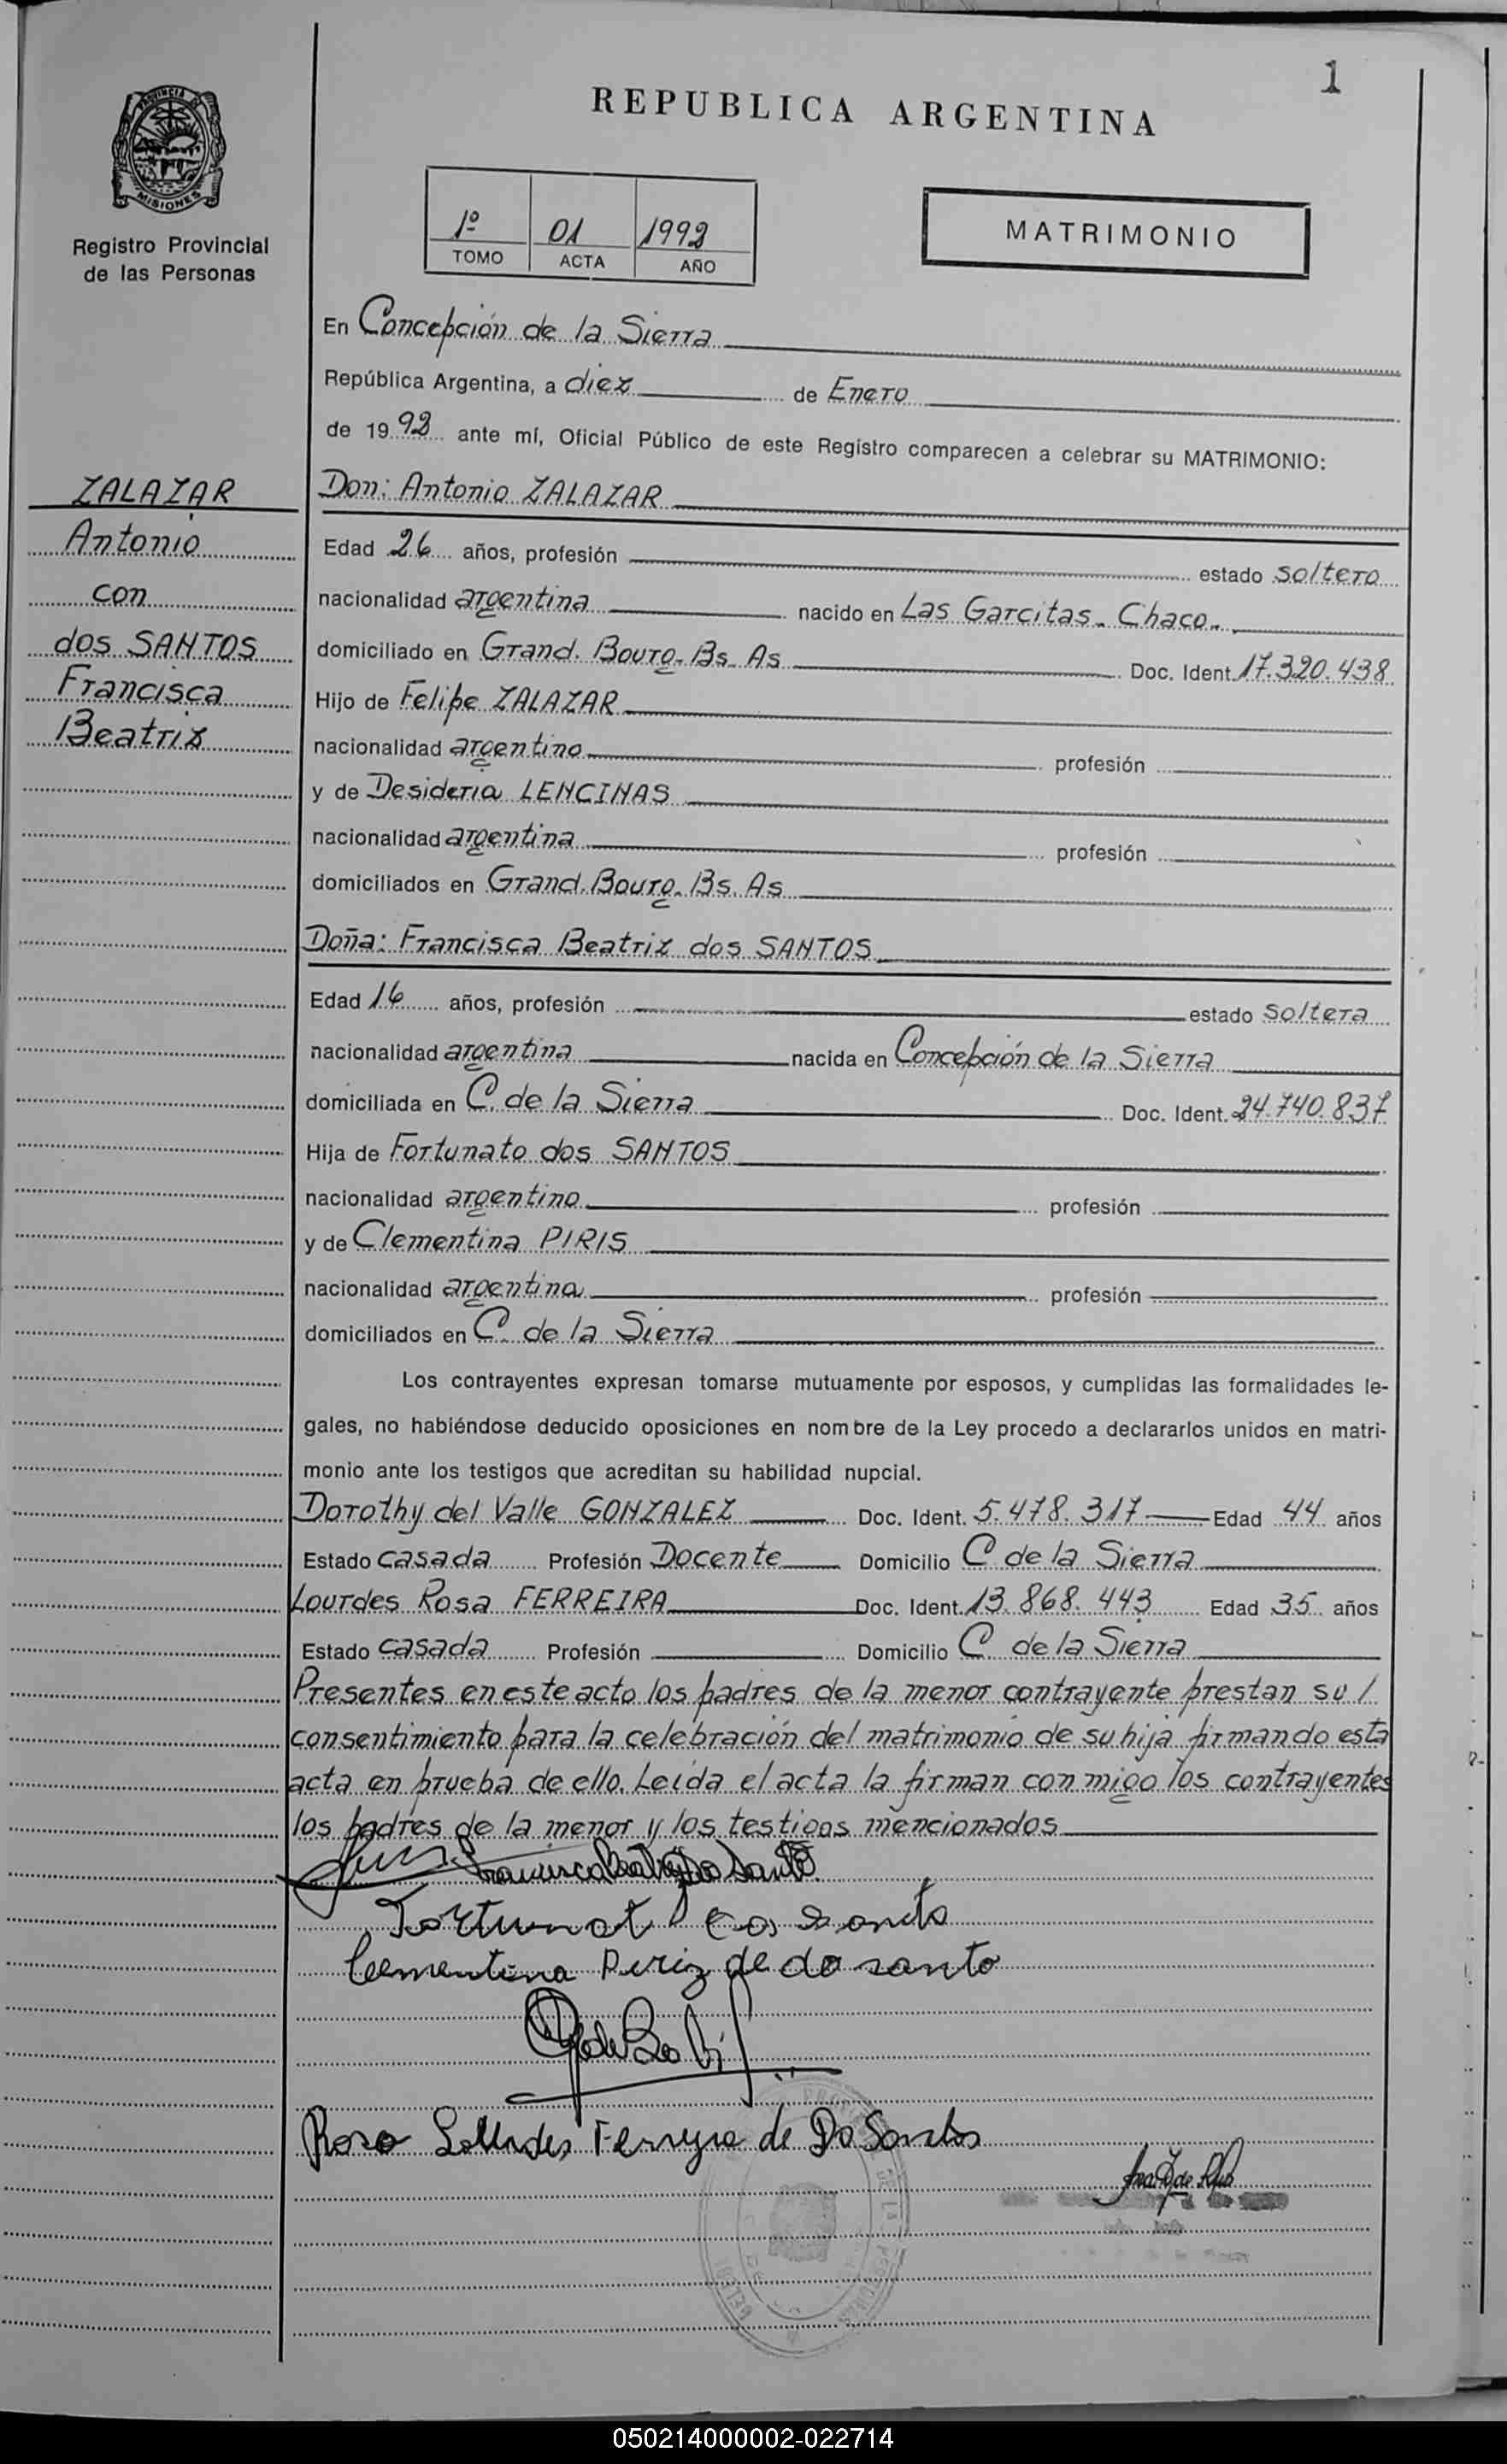 1
REPUBLICA ARGENTINA
PROVINCIA DE
MISIONES
Registro Provincial
de las Personas
1º 01 1992
TOMO ACTA AÑO
MATRIMONIO
En Concepción de la Sierra
República Argentina, a diez de Enero
de 19 92 ante mí, Oficial Público de este Registro comparecen a celebrar su MATRIMONIO:
ZALAZAR
Antonio
con
dos SANTOS
Francisca
Beatriz
Don: Antonio ZALAZAR
Edad 26 años, profesión estado soltero
nacionalidad argentina nacido en Las Garcitas - Chaco -
domiciliado en Grand. Bourg - Bs. As Doc. Ident. 17.320.438
Hijo de Felipe ZALAZAR
nacionalidad argentino profesión
y de Desideria LENCINAS
nacionalidad argentina profesión
domiciliados en Grand. Bourg - Bs. As
Doña: Francisca Beatriz dos SANTOS
Edad 16 años, profesión estado soltera
nacionalidad argentina nacida en Concepción de la Sierra
domiciliada en C. de la Sierra Doc. Ident. 24.740.837
Hija de Fortunato dos SANTOS
nacionalidad argentino profesión
y de Clementina PIRIS
nacionalidad argentina profesión
domiciliados en C. de la Sierra
Los contrayentes expresan tomarse mutuamente por esposos, y cumplidas las formalidades le-
gales, no habiéndose deducido oposiciones en nombre de la Ley procedo a declararlos unidos en matri-
monio ante los testigos que acreditan su habilidad nupcial.
Dorothy del Valle GONZALEZ Doc. Ident. 5.478.317 Edad 44 años
Estado casada Profesión Docente Domicilio C de la Sierra
Lourdes Rosa FERREIRA Doc. Ident. 13.868.443 Edad 35 años
Estado casada Profesión Domicilio C. de la Sierra
Presentes en este acto los padres de la menor contrayente prestan su /
consentimiento para la celebración del matrimonio de su hija firmando esta
acta en prueba de ello. Leída el acta la firman conmigo los contrayentes
los padres de la menor y los testigos mencionados
Francisca Beatriz Do Santo
Fortunat Dos Santo
Clementina Piriz de do santo
Rosa Lourdes Ferreyra de Do Santos
050214000002-022714